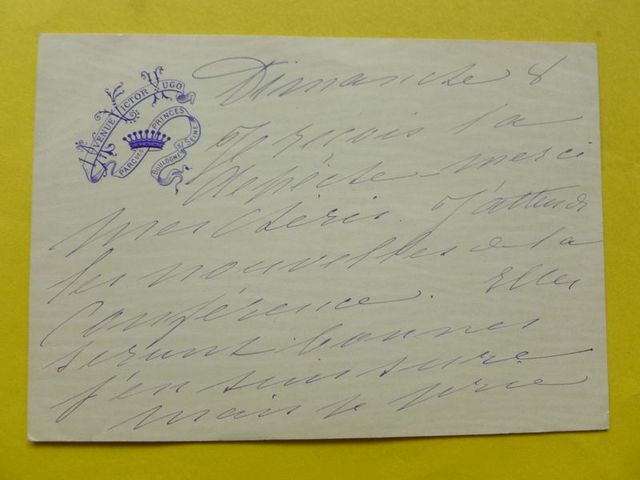 AVENUE VICTOR HUGO
PARC DES PRINCES
BOULOGNE S/ SEINE
Dimanche 8
Je reçois la
dépêche merci
mes chéris. J'attends
les nouvelles de la
Conférence. Elles
seront bonnes
j'en suis sûre
mais je prie